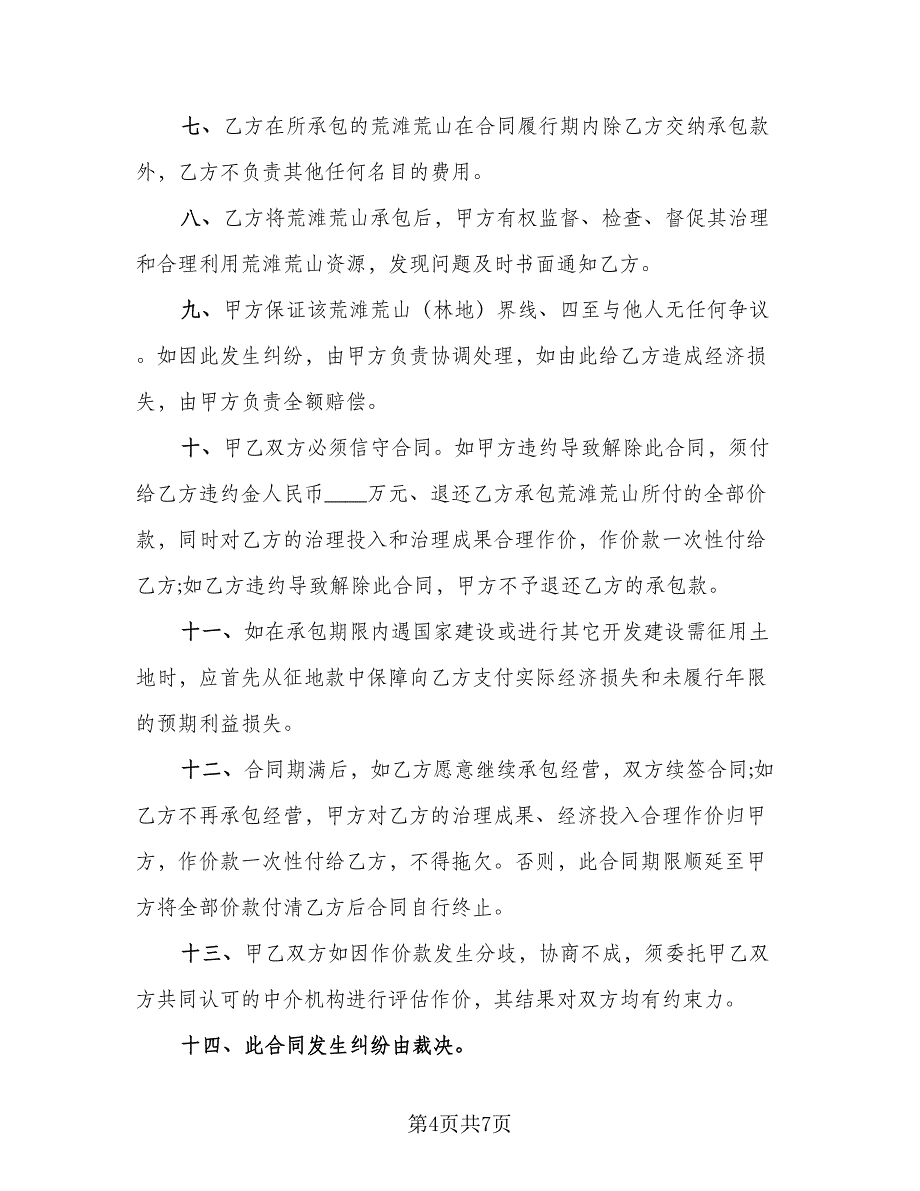 七、乙方在所承包的荒滩荒山在合同履行期内除乙方交纳承包款
外，乙方不负责其他任何名目的费用。
八、乙方将荒滩荒山承包后，甲方有权监督、检查、督促其治理
和合理利用荒滩荒山资源，发现问题及时书面通知乙方。
九、甲方保证该荒滩荒山（林地）界线、四至与他人无任何争议
。如因此发生纠纷，由甲方负责协调处理，如由此给乙方造成经济损
失，由甲方负责全额赔偿。
十、甲乙双方必须信守合同。如甲方违约导致解除此合同，须付
给乙方违约金人民币____万元、退还乙方承包荒滩荒山所付的全部价
款，同时对乙方的治理投入和治理成果合理作价，作价款一次性付给
乙方;如乙方违约导致解除此合同，甲方不予退还乙方的承包款。
十一、如在承包期限内遇国家建设或进行其它开发建设需征用土
地时，应首先从征地款中保障向乙方支付实际经济损失和未履行年限
的预期利益损失。
十二、合同期满后，如乙方愿意继续承包经营，双方续签合同;如
乙方不再承包经营，甲方对乙方的治理成果、经济投入合理作价归甲
方，作价款一次性付给乙方，不得拖欠。否则，此合同期限顺延至甲
方将全部价款付清乙方后合同自行终止。
十三、甲乙双方如因作价款发生分歧，协商不成，须委托甲乙双
方共同认可的中介机构进行评估作价，其结果对双方均有约束力。
十四、此合同发生纠纷由裁决。
第4页共7页